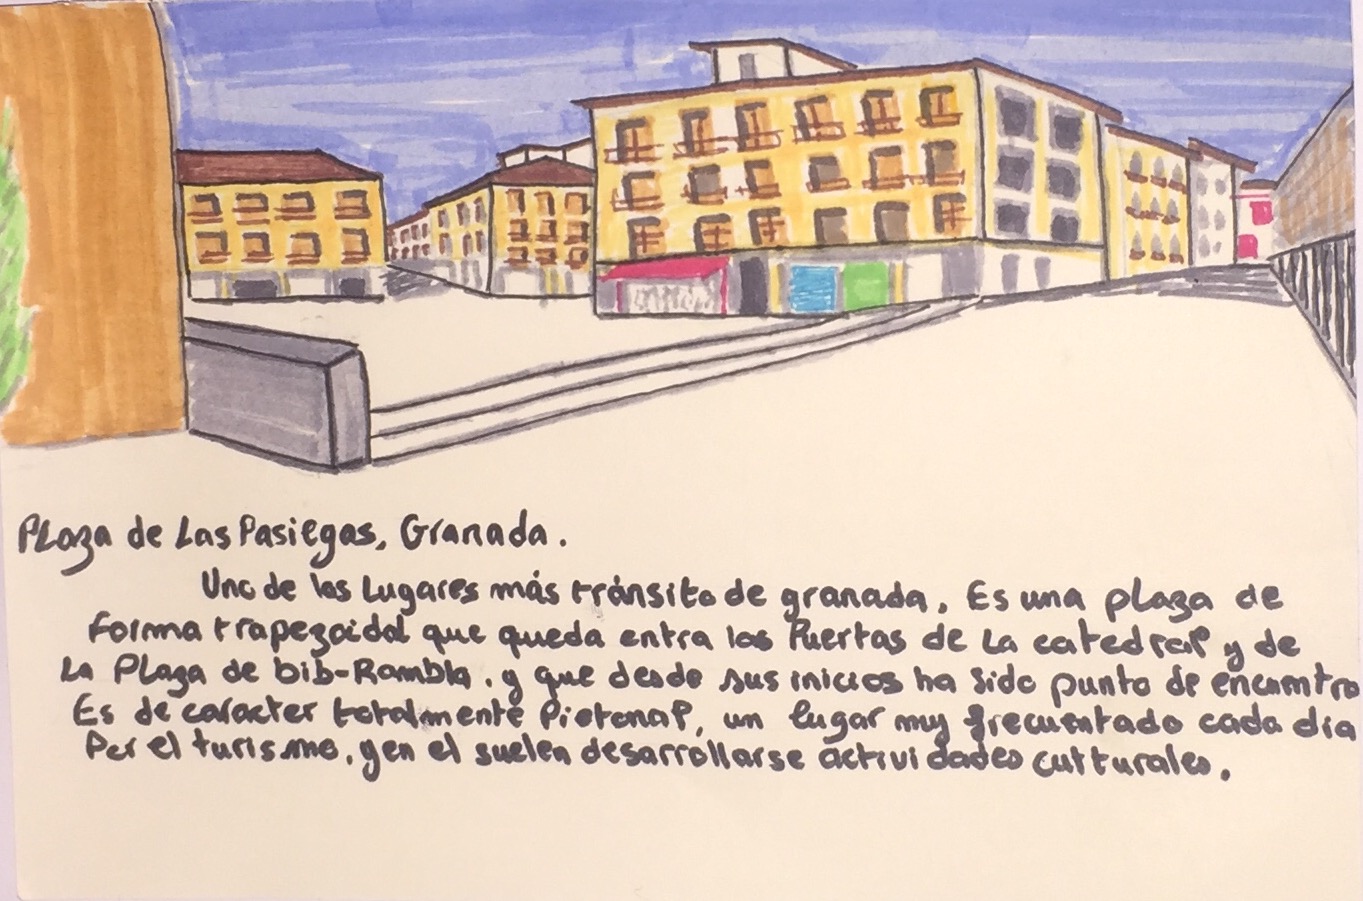 Plaza de Las Pasiegas, Granada.
Uno de los Lugares más tránsito de granada. Es una plaza de
forma trapezoidal que queda entra las Puertas de La catedral y de
La Plaza de bib-Rambla. y que desde sus inicios ha sido punto de encuntro
Es de caracter totalmente Pietonal, un lugar muy frecuentado cada día
Por el turismo. y en el suelen desarrollarse actividades culturales.